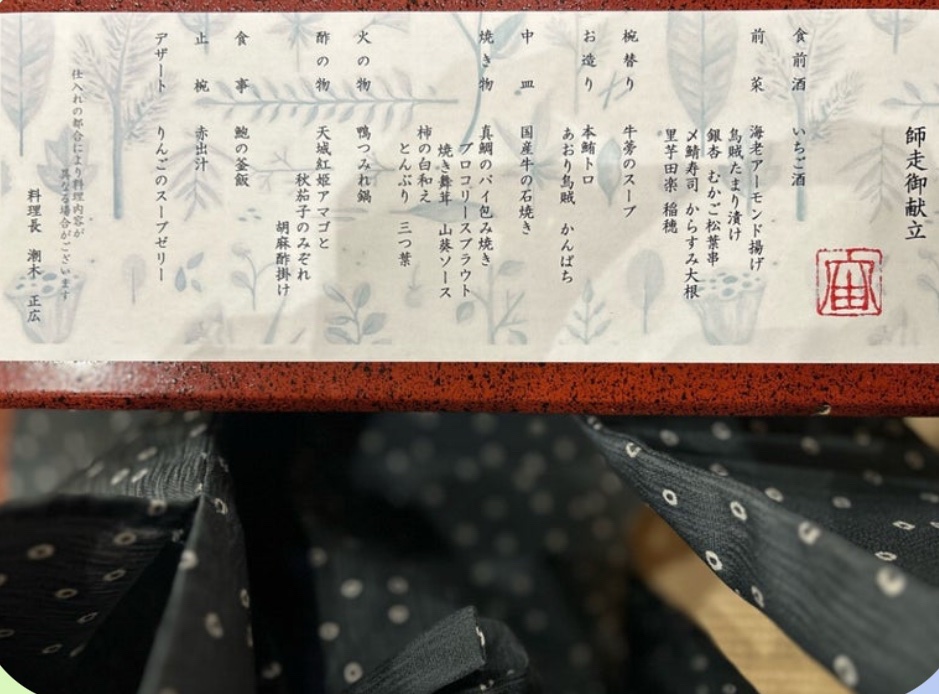 師走御献立
食前酒　いちご酒
前菜　海老アーモンド揚げ
烏賊たまり漬け
銀杏　むかご松葉串
〆鯖寿司　からすみ大根
里芋田楽　稲穂
椀替り　牛蒡のスープ
お造り　本鮪トロ
あおり烏賊　かんぱち
中皿　国産牛の石焼き
焼き物　真鯛のパイ包み焼き
ブロコリースプラウト
焼き舞茸　山葵ソース
柿の白和え
とんぶり　三つ葉
火の物　鴨つみれ鍋
酢の物　天城紅姫アマゴと
秋茄子のみぞれ
胡麻酢掛け
食事　鮑の釜飯
止椀　赤出汁
デザート　りんごのスープゼリー
仕入れの都合により料理内容が
異なる場合がございます
料理長　潮木　正広